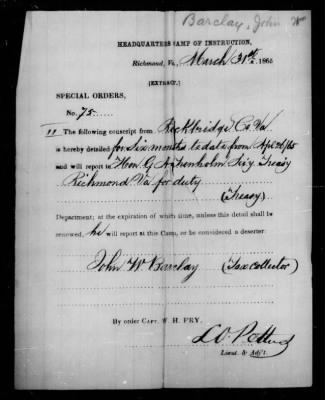 Barclay, John W
HEADQUARTERS CAMP OF INSTRUCTION,
Richmond, Va., March 31st 1865
(EXTRACT.)
SPECIAL ORDERS,
No. 75.
11 The following conscript from Rockbridge Co. Va
is hereby detailed for Six months to date from Apl 26/65
and will report to Hon. G. A. Trenholm Secy Treasy
Richmond Va for duty
(Treasy)
Department; at the expiration of which time, unless this detail shall be
renewed, he will report at this Camp, or be considered a deserter:
John W. Barclay (Tax collector)
By order CAPT. W. H. FRY.
Lieut. & Adj't.